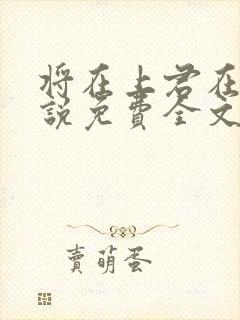 将在上君在
說免費全文
賣萌蛋